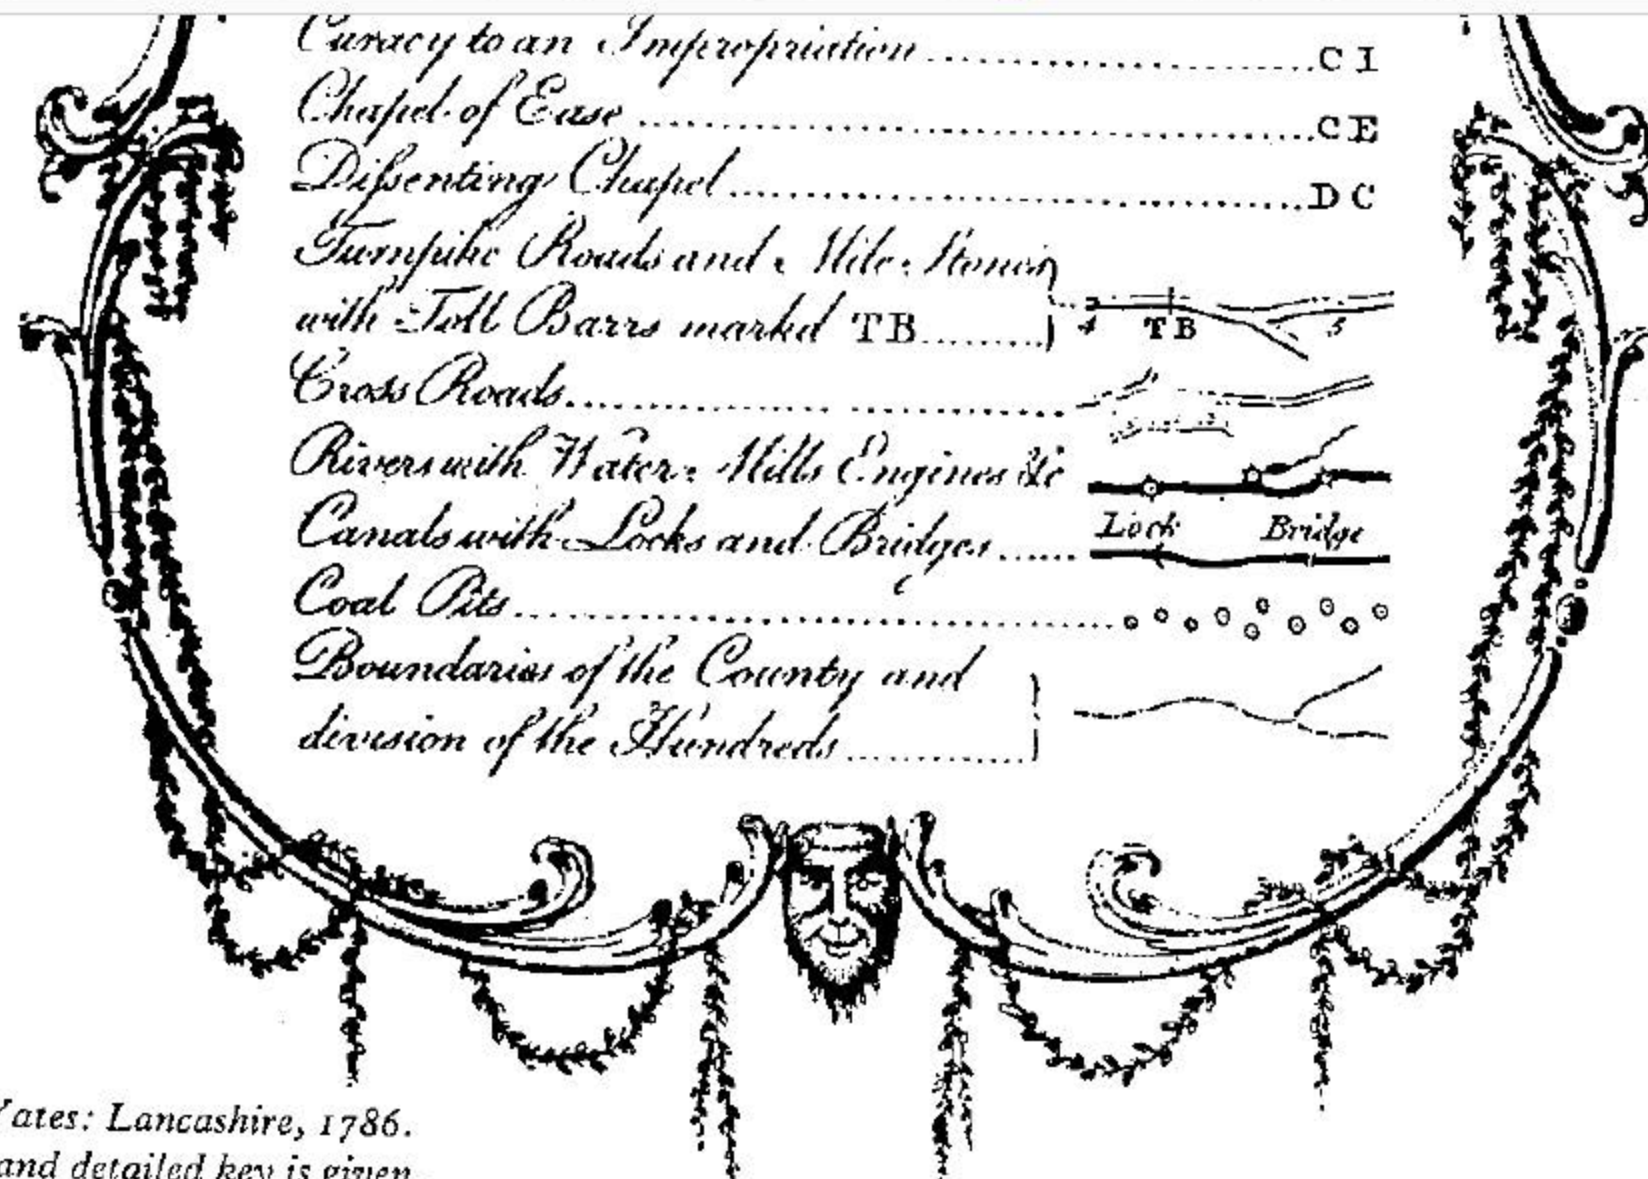 Curacy to an Impropriation ............ C I
Chapel of Ease ............ C E
Diſsenting Chapel ............ D C
Turnpike Roads and Mile Stones
with Toll Barrs markd TB ............ 4 TB 5
Cross Roads ............
Rivers with Water Mills Engines &c
Canals with Locks and Bridges ...... Lock Bridge
Coal Pits ............
Boundaries of the County and
division of the Hundreds ............
Yates: Lancashire, 1786.
and detailed key is given